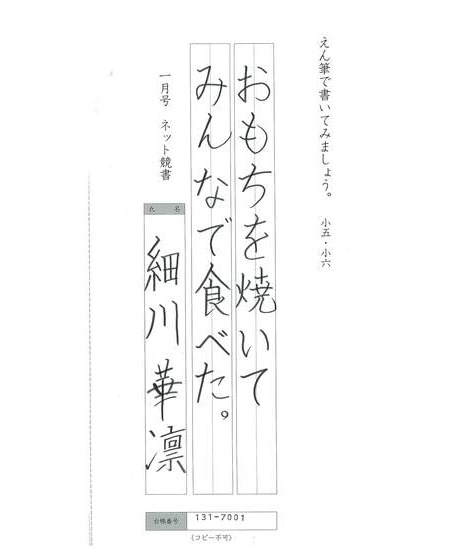 えん筆で書いてみましょう。 小五・小六
おもちを焼いて
みんなで食べた。
一月号 ネット競書
氏名
細川華凛
台帳番号 131-7001
(コピー不可)